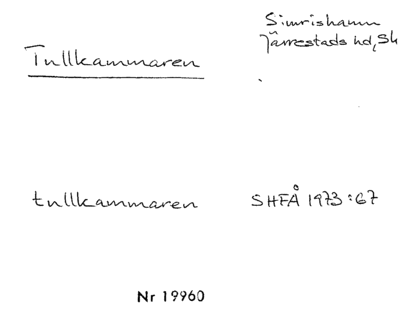 Simrishamn
Järrestads hd, Sk
Tullkammaren
tullkammaren SHFÅ 1973:67
Nr 19960